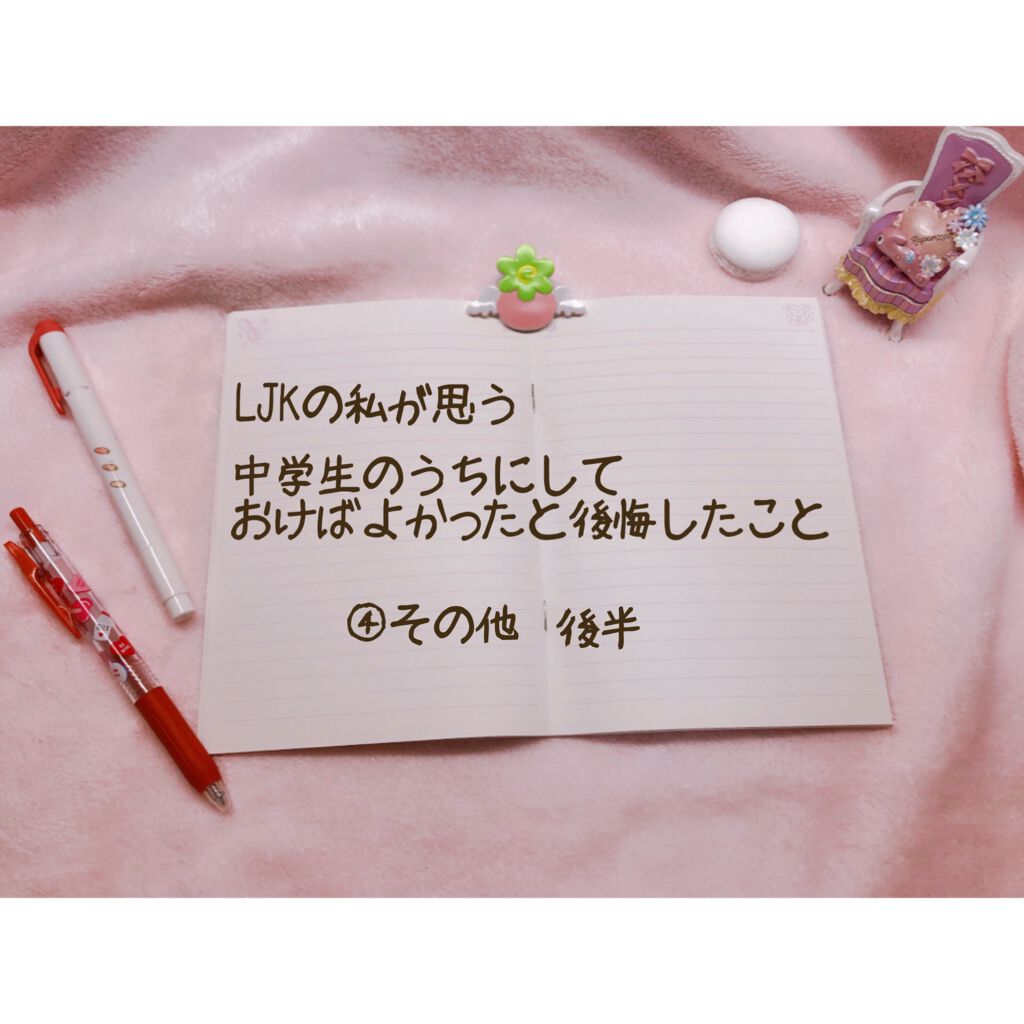 LJKの私が思う
中学生のうちにして
おけばよかったと後悔したこと
④その他 後半
Rapunzel